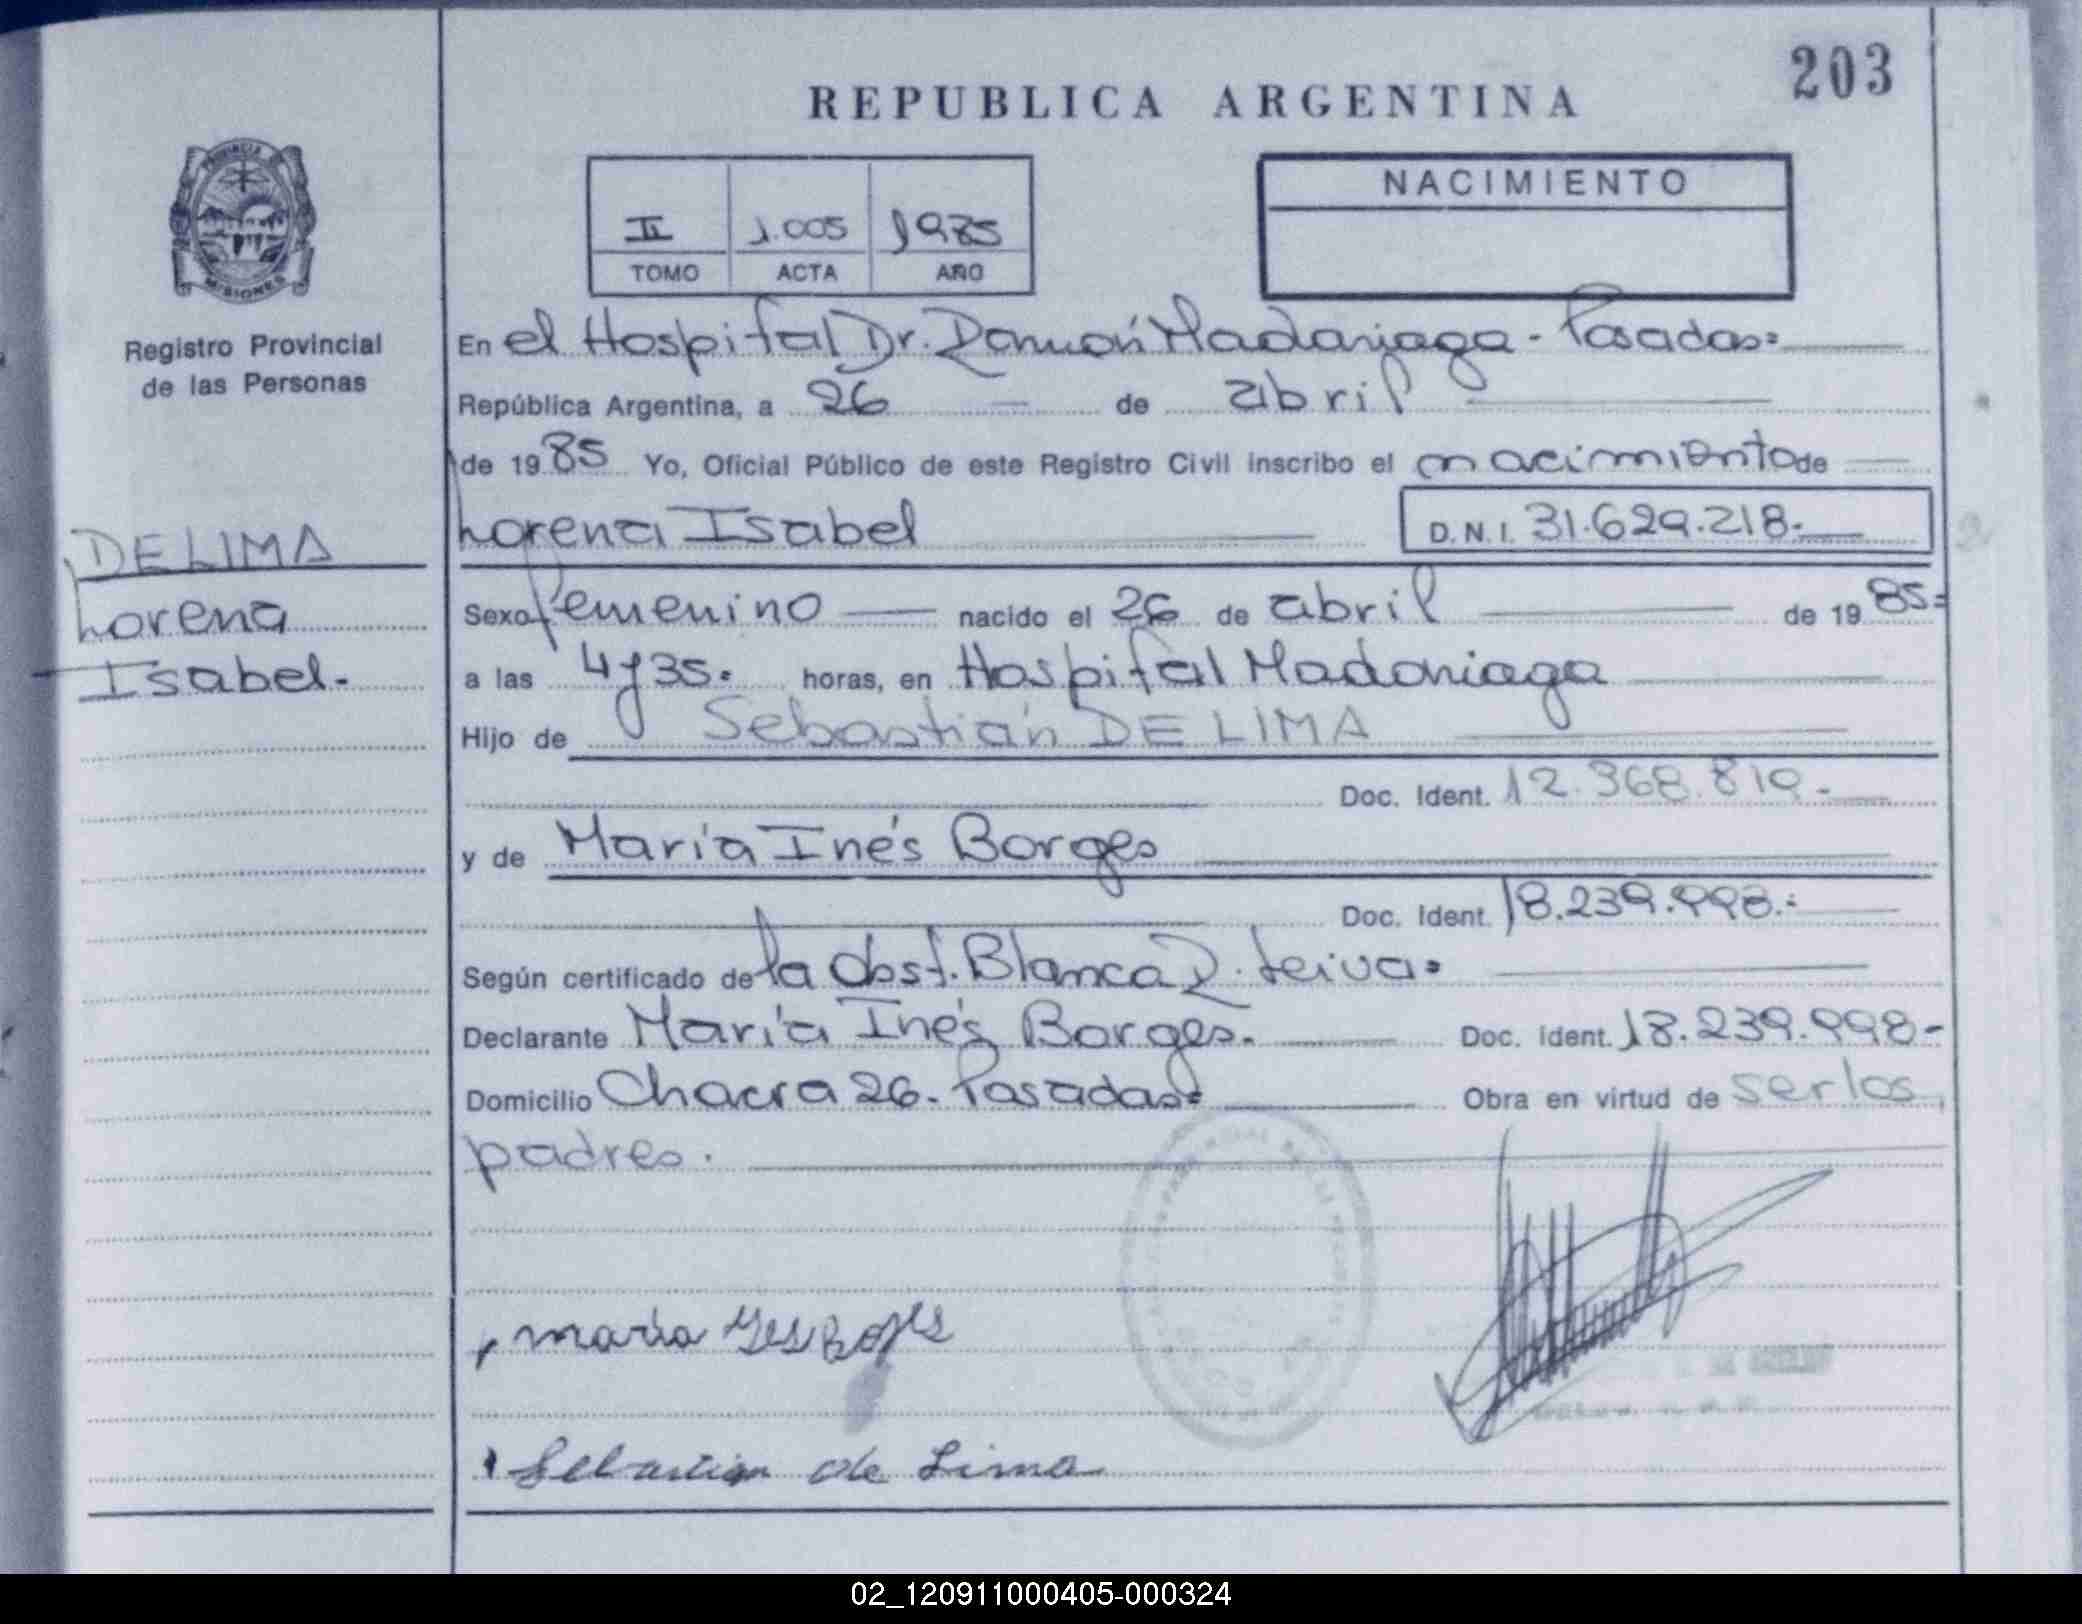 203
REPUBLICA ARGENTINA
PROVINCIA DE
MISIONES
Registro Provincial
de las Personas
II 1.005 1985
TOMO ACTA AÑO
NACIMIENTO
En el Hospital Dr. Ramón Madariaga - Posadas=
República Argentina, a 26 de abril
de 1985 Yo, Oficial Público de este Registro Civil inscribo el nacimiento de
Lorena Isabel D.N.I. 31.629.218.-
DE LIMA
Lorena
Isabel.-
Sexo femenino nacido el 26 de abril de 1985=
a las 4 y 35. horas, en Hospital Madariaga
Hijo de Sebastián DE LIMA
Doc. Ident. 12.368.819.-
y de María Inés Borges
Doc. Ident. 18.239.998.-
Según certificado de la Obst. Blanca R. Leiva.
Declarante María Inés Borges. Doc. Ident. 18.239.998-
Domicilio Chacra 26. Posadas= Obra en virtud de ser los
padres.
maria Borges
Sebastian de Lima
02_120911000405-000324